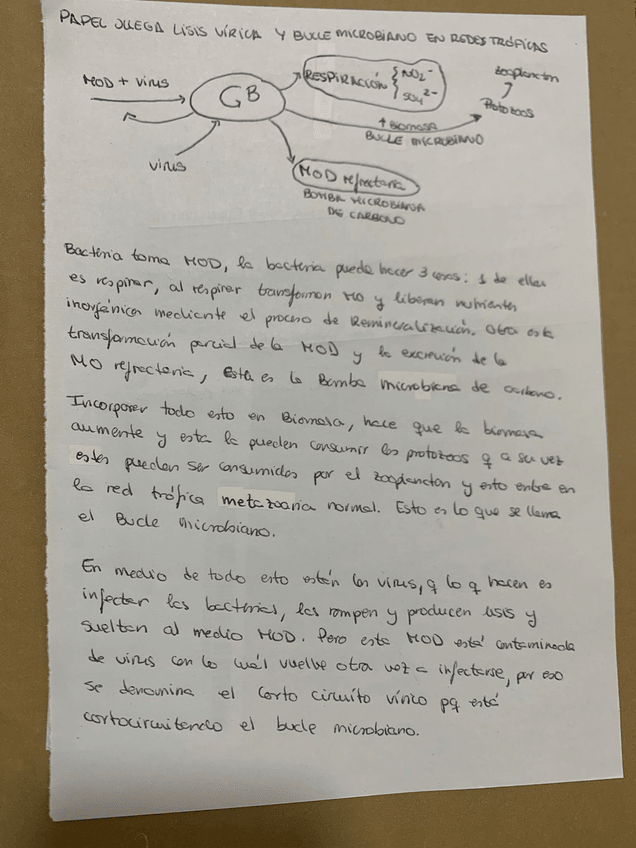 PAPEL JUEGA LISIS VÍRICA Y BUCLE MICROBIANO EN REDES TRÓFICAS
MOD + VIRUS
GB
VIRUS
RESPIRACIÓN { NO2-
SO4 2-
zooplancton
Protozoos
↑ Biomasa
BUCLE MICROBIANO
MOD refractaria
BOMBA MICROBIANA
DE CARBONO
Bacteria toma MOD, la bacteria puede hacer 3 cosas: 1 de ellas
es respirar, al respirar transforman MO y liberan nutrientes
inorgánica mediante el proceso de Remineralización. Otra es la
transformación parcial de la MOD y la excreción de la
MO refractaria, Esta es la Bomba microbiana de carbono.
Incorporar todo esto en Biomasa, hace que la biomasa
aumente y esta la pueden consumir los protozoos q a su vez
estos pueden ser consumidos por el zooplancton y esto entra en
la red trófica metazoaria normal. Esto es lo que se llama
el Bucle microbiano.
En medio de todo esto están los virus, q lo q hacen es
infectar las bacterias, las rompen y producen lisis y
sueltan al medio MOD. Pero esta MOD está contaminada
de virus con lo cuál vuelve otra vez a infectarse, por eso
se denomina el corto circuíto vírico pq está
cortocircuitando el bucle microbiano.